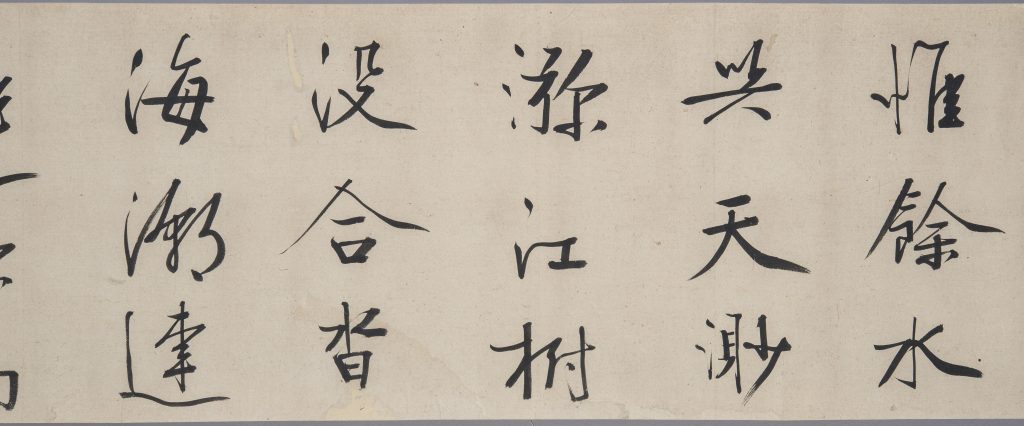 惟餘水
與天渺
瀰江樹
没合沓
海潮連